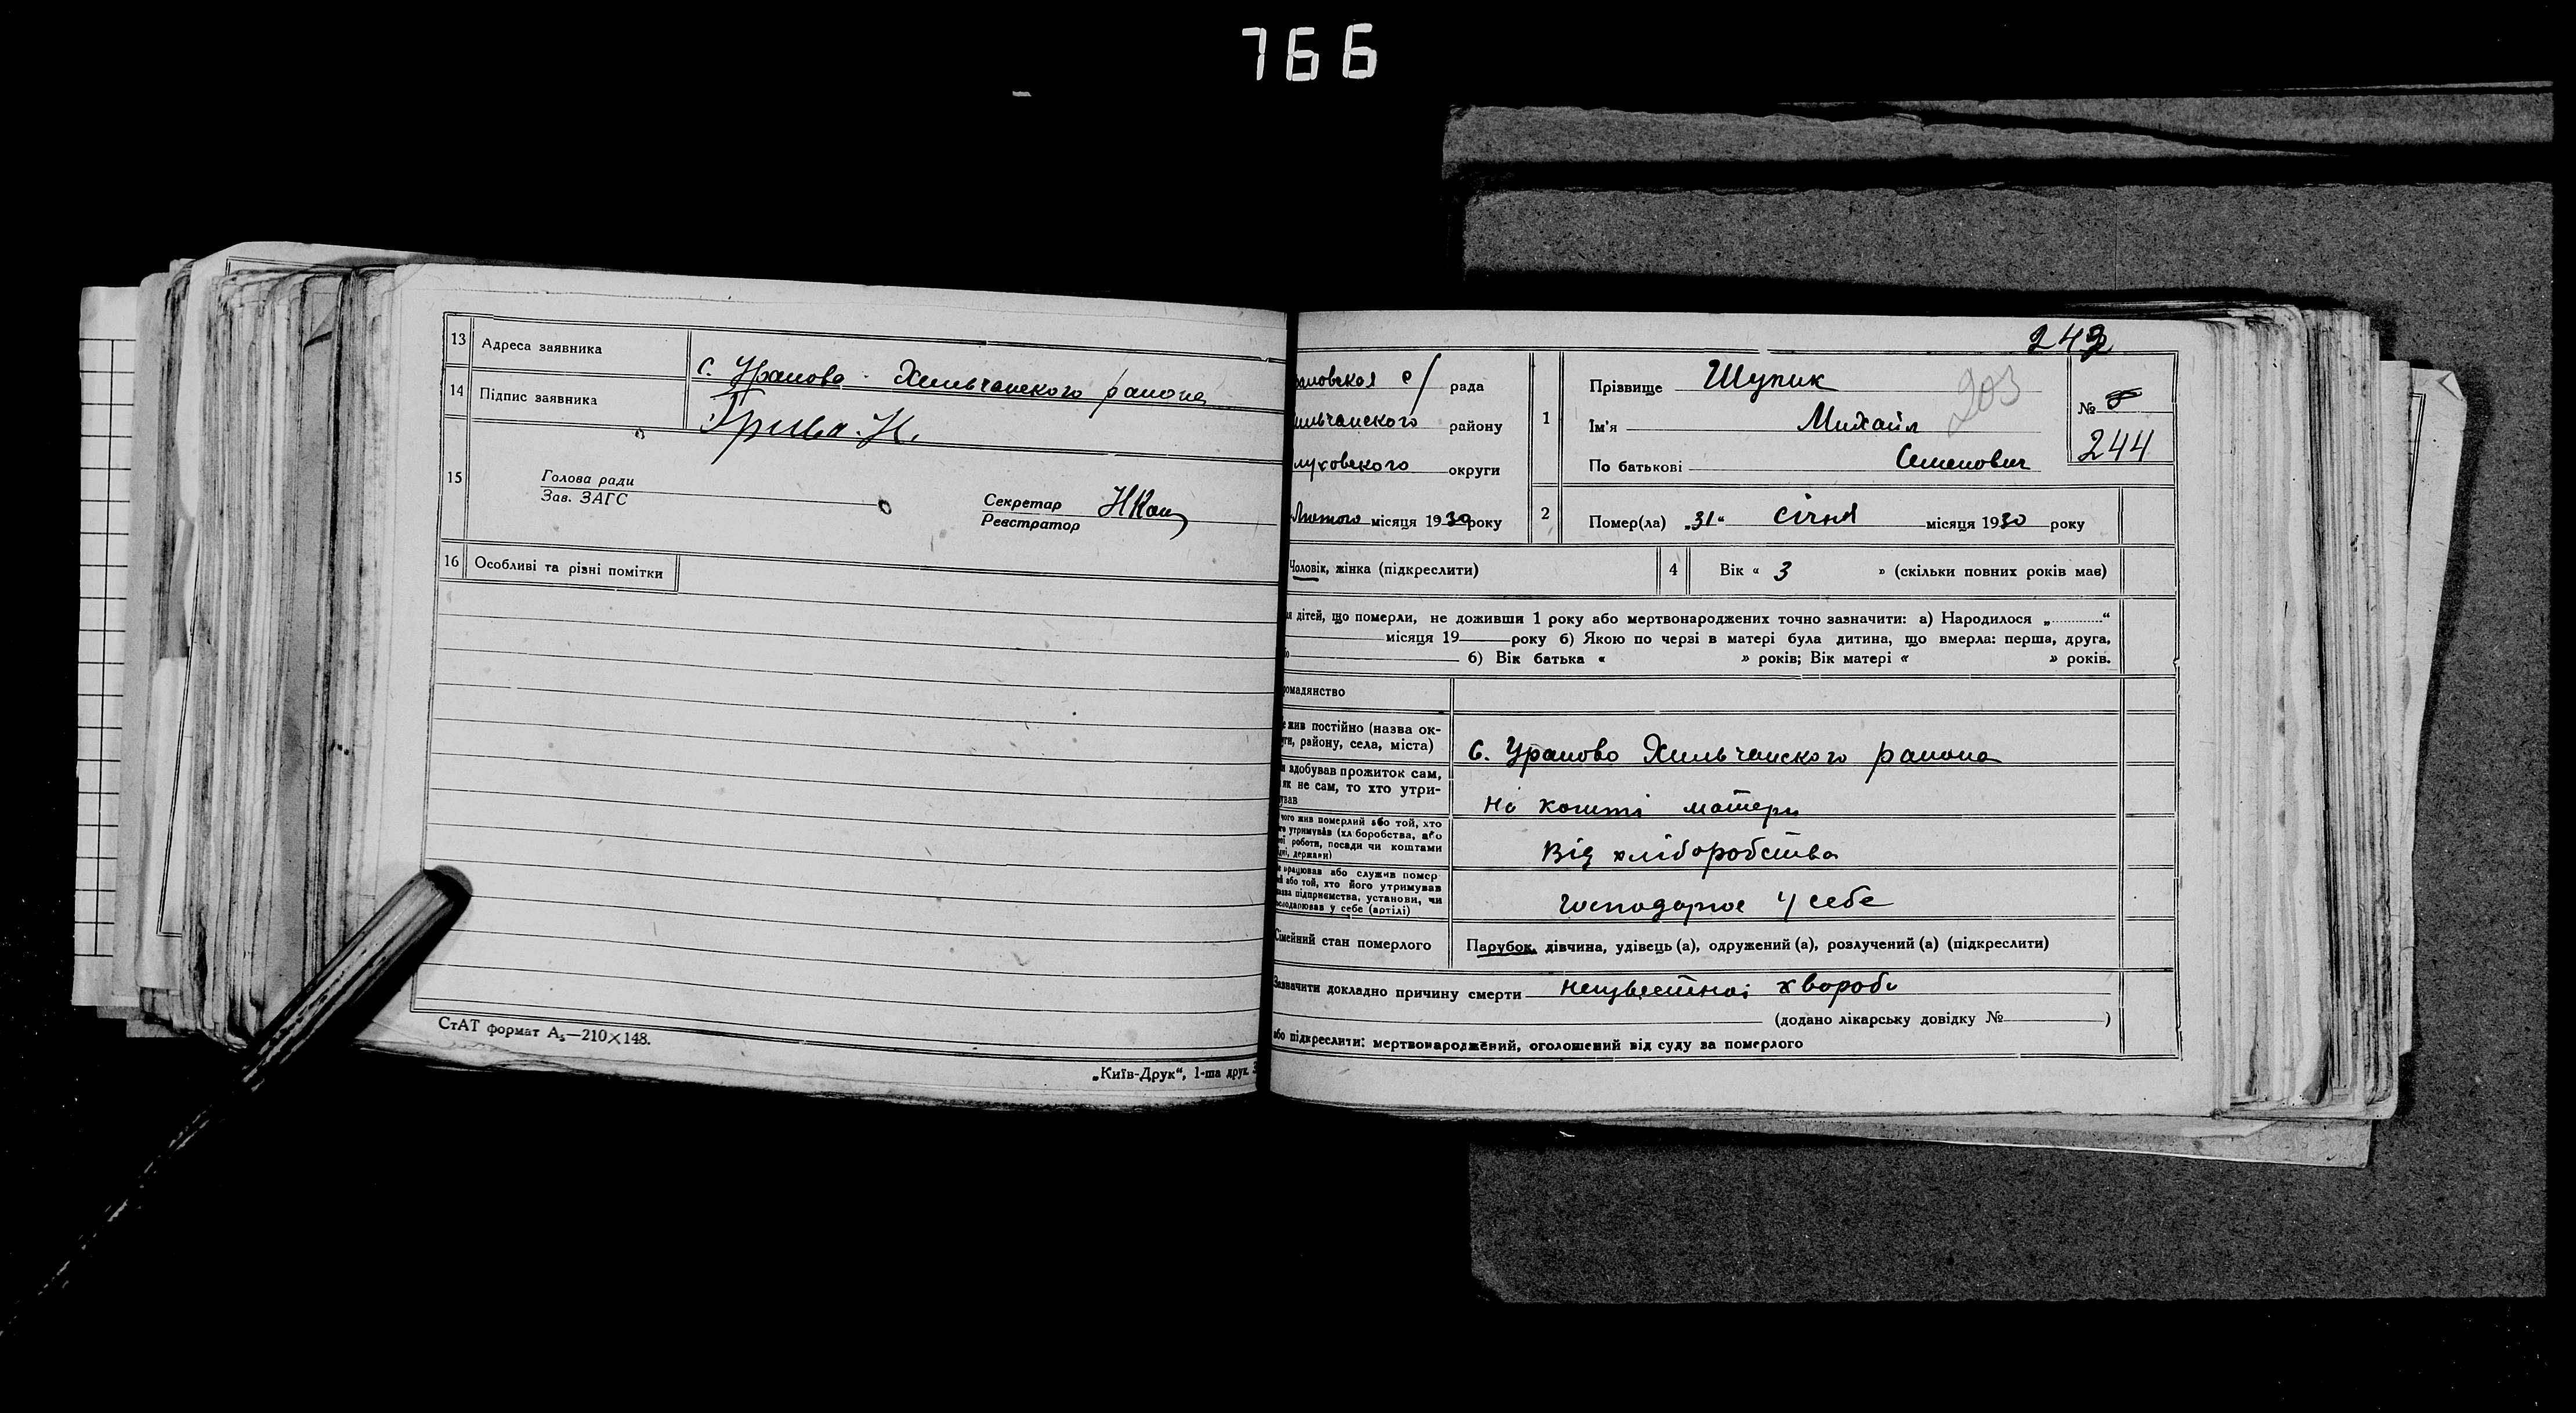 766
13 Адреса заявника с. Уралово Хильчанского района
14 Підпис заявника Грива Н.
15 Голова ради
Зав. ЗАГС
Секретар
Реєстратор
16 Особливі та різні помітки
СтАТ формат А₅—210×148.
„Київ-Друк“, 1-ша друк.
242
рада
203
району
округи
Лютого місяця 1930 року
1 Прізвище Шупик
Ім'я Михайл
По батькові Семенович
№
244
2 Помер(ла) „31“ січня місяця 1930 року
Чоловік, жінка (підкреслити)
4 Вік « 3 » (скільки повних років має)
дітей, що померли, не доживши 1 року або мертвонароджених точно зазначити: а) Народилося „............“
місяця 19 року б) Якою по черзі в матері була дитина, що вмерла: перша, друга,
б) Вік батька « » років; Вік матері « » років.
омадянство
жив постійно (назва ок-
ги, району, села, міста) с. Уралово Хильчанского района
здобував прожиток сам,
як не сам, то хто утри-
ував На кошті матери
чого жив померлий або той, хто
утримував (хліборобства, або
роботи, посади чи коштами
держави) Від хліборобства
працював або служив помер-
або той, хто його утримував
підприємства, установи, чи
осподарював у себе (артілі) господарює у себе
Сімейний стан померлого Парубок, дівчина, удівець (а), одружений (а), розлучений (а) (підкреслити)
Зазначити докладно причину смерти неизвестноі хвороби
(додано лікарську довідку № )
або підкреслити: мертвонароджений, оголошений від суду за померлого